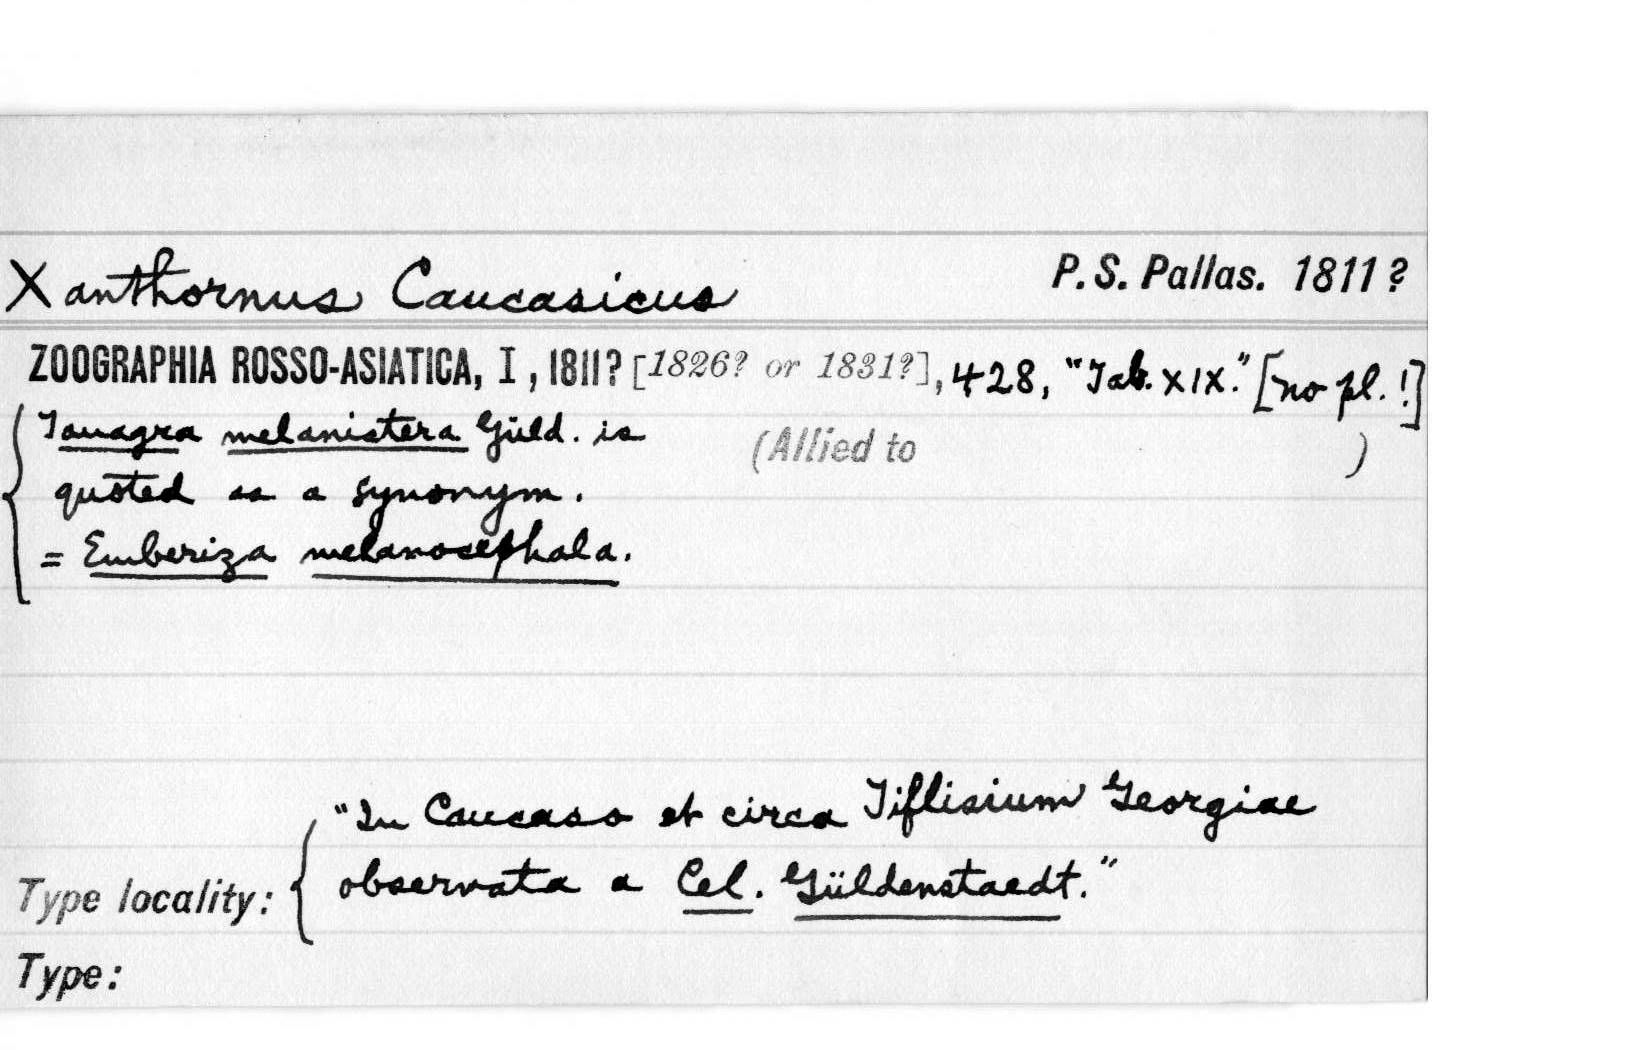 Xanthornus Caucasicus P.S. Pallas. 1811?
ZOOGRAPHIA ROSSO-ASIATICA, I, 1811? [1826? or 1831?], 428, "Tab. XIX." [no pl.!]
Tanagra melanictera Güld. is (Allied to )
quoted as a synonym.
= Emberiza melanocephala.
"In Caucaso et circa Tiflisium Georgiae
Type locality: observata a Cel. Güldenstaedt."
Type: